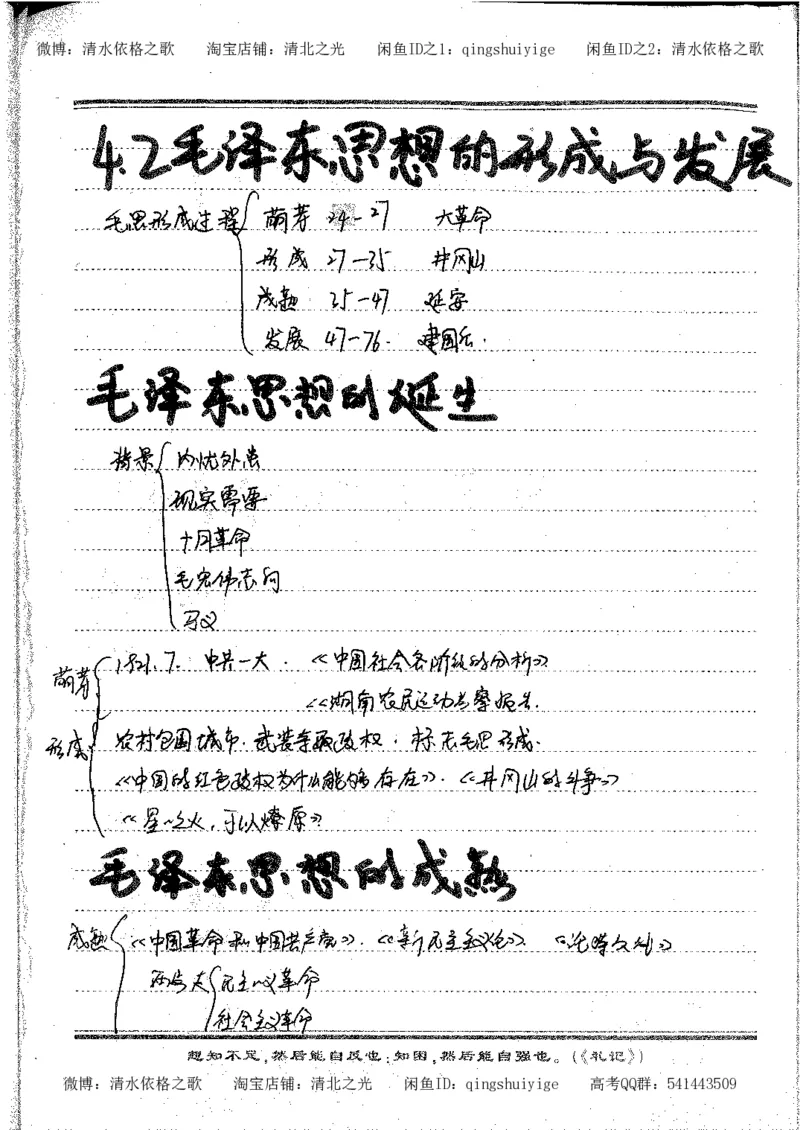 微博：清水依格之歌 淘宝店铺：清北之光 闲鱼ID之1：qingshuiyige 闲鱼ID之2：清水依格之歌
4.2毛泽东思想的形成与发展
毛思形成过程 萌芽 24-27 大革命
形成 27-35 井冈山
成熟 35-47 延安
发展 47-76. 建国后.
毛泽东思想的诞生
背景 内忧外患
现实需要
十月革命
毛宏伟志向
马义
萌芽 1921.7. 中共一大. 《中国社会各阶级的分析》
《湖南农民运动考察报告.
形成 农村包围城市.武装夺取政权.标志毛思形成.
《中国的红色政权为什么能够存在》.《井冈山的斗争》
《星~之火,可以燎原》
毛泽东思想的成熟
成熟 《中国革命和中国共产党》.《新民主主义论》
两步走 民主~义革命
社会主义革命
想知不足，然后能自反也；知困，然后能自强也。（《礼记》）
微博：清水依格之歌 淘宝店铺：清北之光 闲鱼ID：qingshuiyige 高考QQ群：541443509